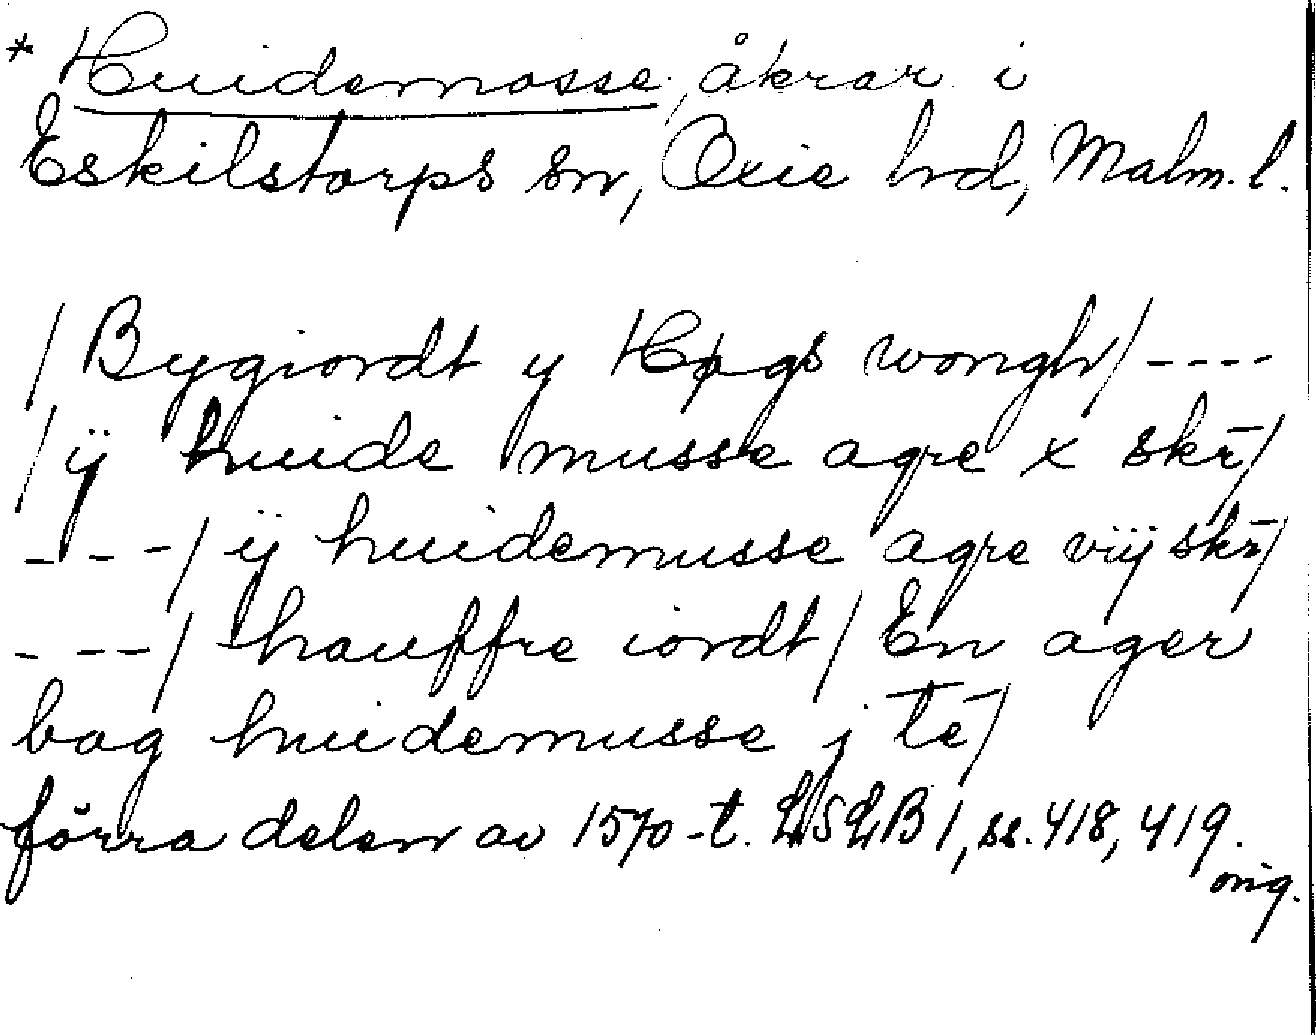 * Huidemosse, åkrar i
Eskilstorps sn, Oxie hd, Malm. l.
/ Bygiordt y Høgs wongh/ ----
/ ÿ huide musse agre x skr̄/
---/ ÿ huidemusse agre vÿ skr̄/
---/ hauffre iordt/ En ager
bag huidemusse j te̅/
förra delen av 1570-t. LSLB 1, ss. 418, 419.
orig.